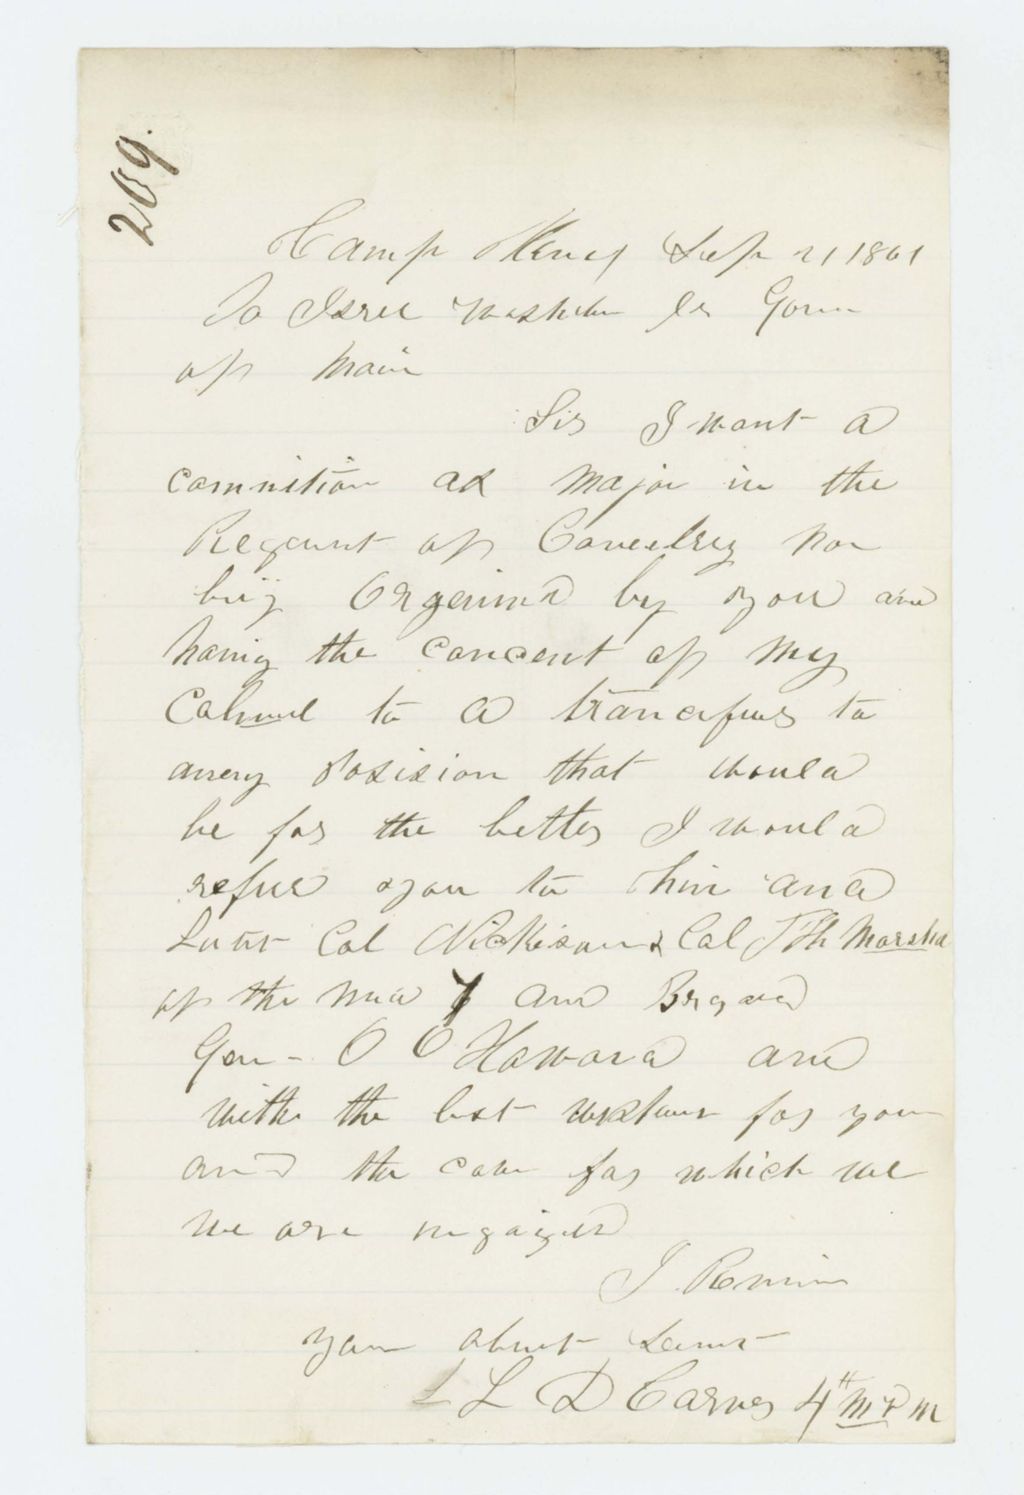 209.
Camp Sep 21 1861
To Isrel Washbun Jr Govn
off Main
Sir I want a
commition as Major in the
Regament off Cavelrey nou
big Orgenised by you and
having the concent off my
Colonel to a trancefur to
anery Posision that would
be for the better I would
refur you to him and
Lutt Col Nickison & Col T H Marshal
off the 7 and Brgaed
Gen - O O Howard and
with the best for you
and the case for which we
we are ingaiged
I Remin
your abunt Sernt
L D Carver 4th M V M